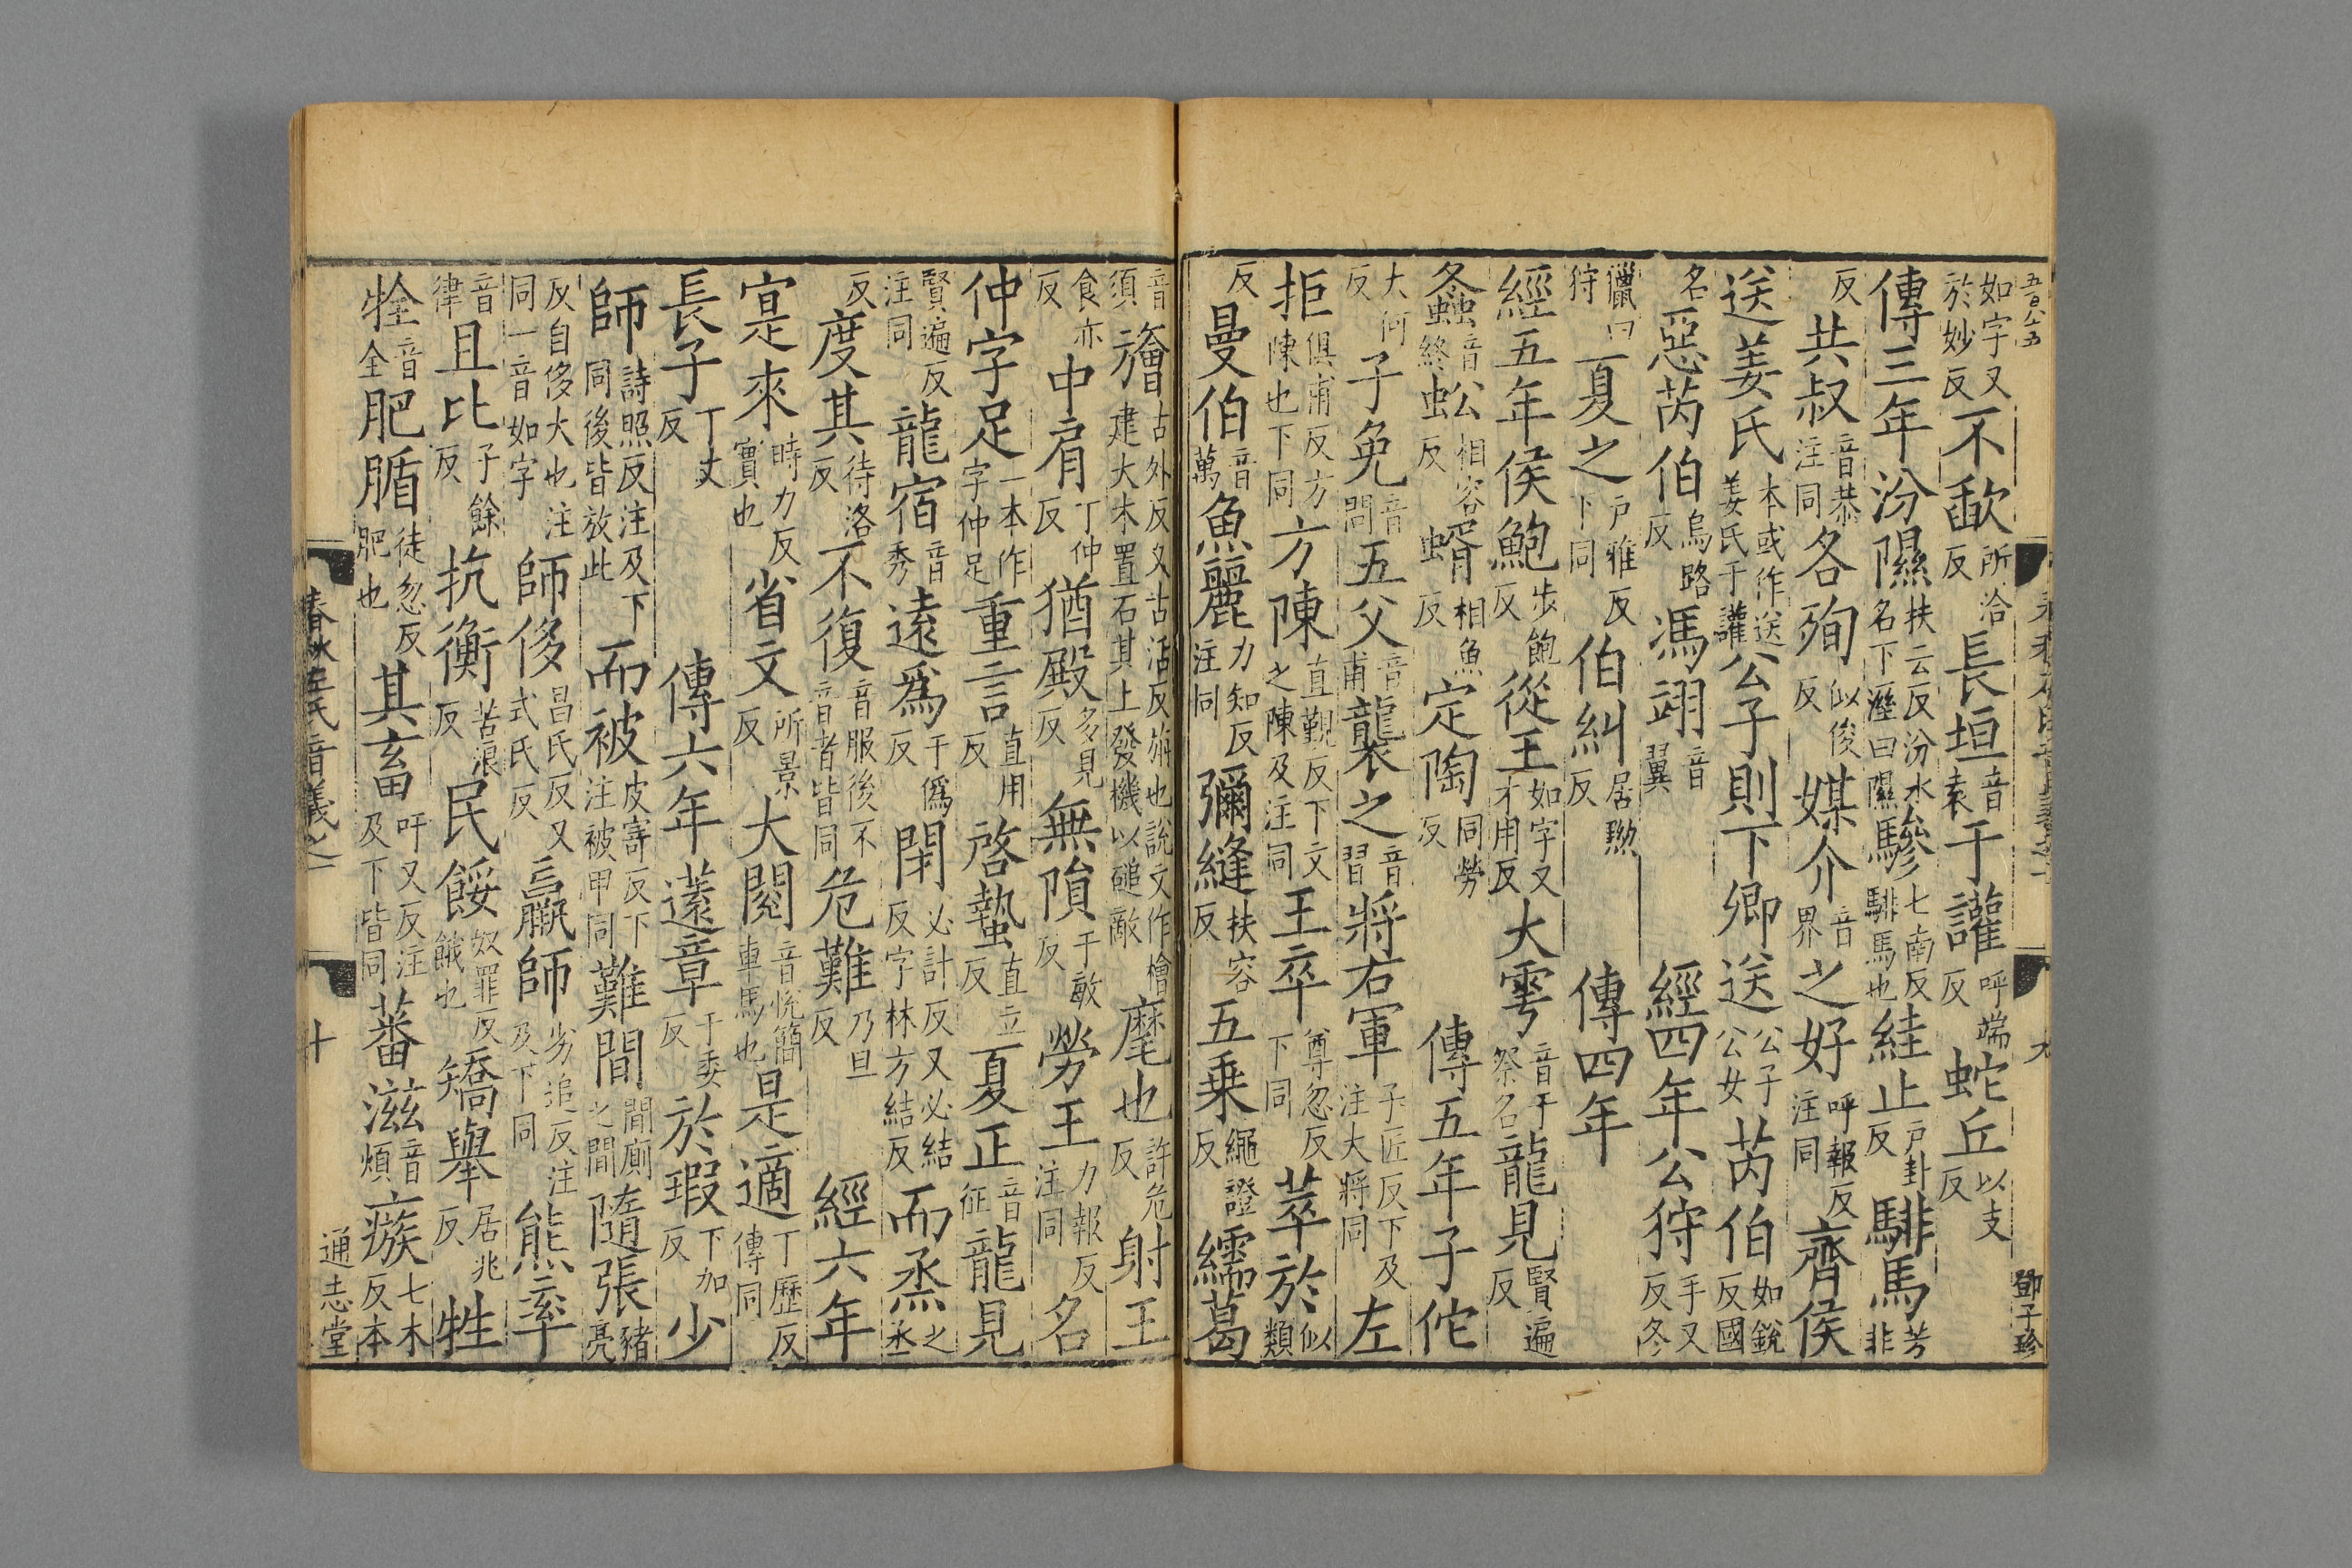 如字又於妙反不歃所洽反長垣音袁于讙呼端反蛇丘以支反
傳三年汾隰扶云反汾水名下溼曰隰驂七南反騑馬也絓止戶卦反騑馬芳非
反共叔音恭注同各殉似俊反媒介音界之好呼報反注同齊侯
送姜氏本或作送姜氏于讙公子則下卿送公子公女芮伯如銳反國
名惡芮伯烏路反馮翊音翼經四年公狩手又反冬
獵曰狩夏之戶雅反下同伯糾居黝反傳四年
經五年侯鮑步飽反從王如字又才用反大雩音于祭名龍見賢遍反
螽音終蚣相容反蝑相魚反定陶同勞反傳五年子佗
大何反子免音問五父音甫襲之音習將右軍子匠反下及注大將同左
拒俱甫反方陳也下同方陳直覲反下文之陳及注同王卒尊忽反下同萃於似類
反曼伯音萬魚麗力知反注同彌縫扶容反五乘繩證反繻葛
音須旝古外反又古活反旃也說文作檜建大木置石其上發機以磓敵麾也許危反射王
食亦反中肩丁仲反猶殿多見反無隕于敏反勞王力報反注同名
仲字足一本作字仲足重言直用反啓蟄直立反夏正音征龍見
賢遍反注同龍宿音秀遠為于僞反閉必計反又必結反字林方結反而烝之丞
反度其待洛反不復音服後不音者皆同危難乃旦反經六年
寔來時力反實也省文所景反大閱音悅簡車馬也是適丁歷反傳同
長子丁丈反傳六年薳章于委反於瑕下加反少
師詩照反注及下同後皆放此而被皮寄反下注被甲同難間間廁之間隨張豬亮
反自侈大也注同一音如字師侈昌氏反又式氏反羸師劣追反注及下同熊率
音律且比子餘反抗衡苦浪反民餒奴罪反餓也矯舉居兆反牲
牷音全肥腯徒忽反肥也其畜吁又反注及下皆同蕃滋音煩瘯七木反本
春秋左氏音義之一
十
通志堂
鄧子珍